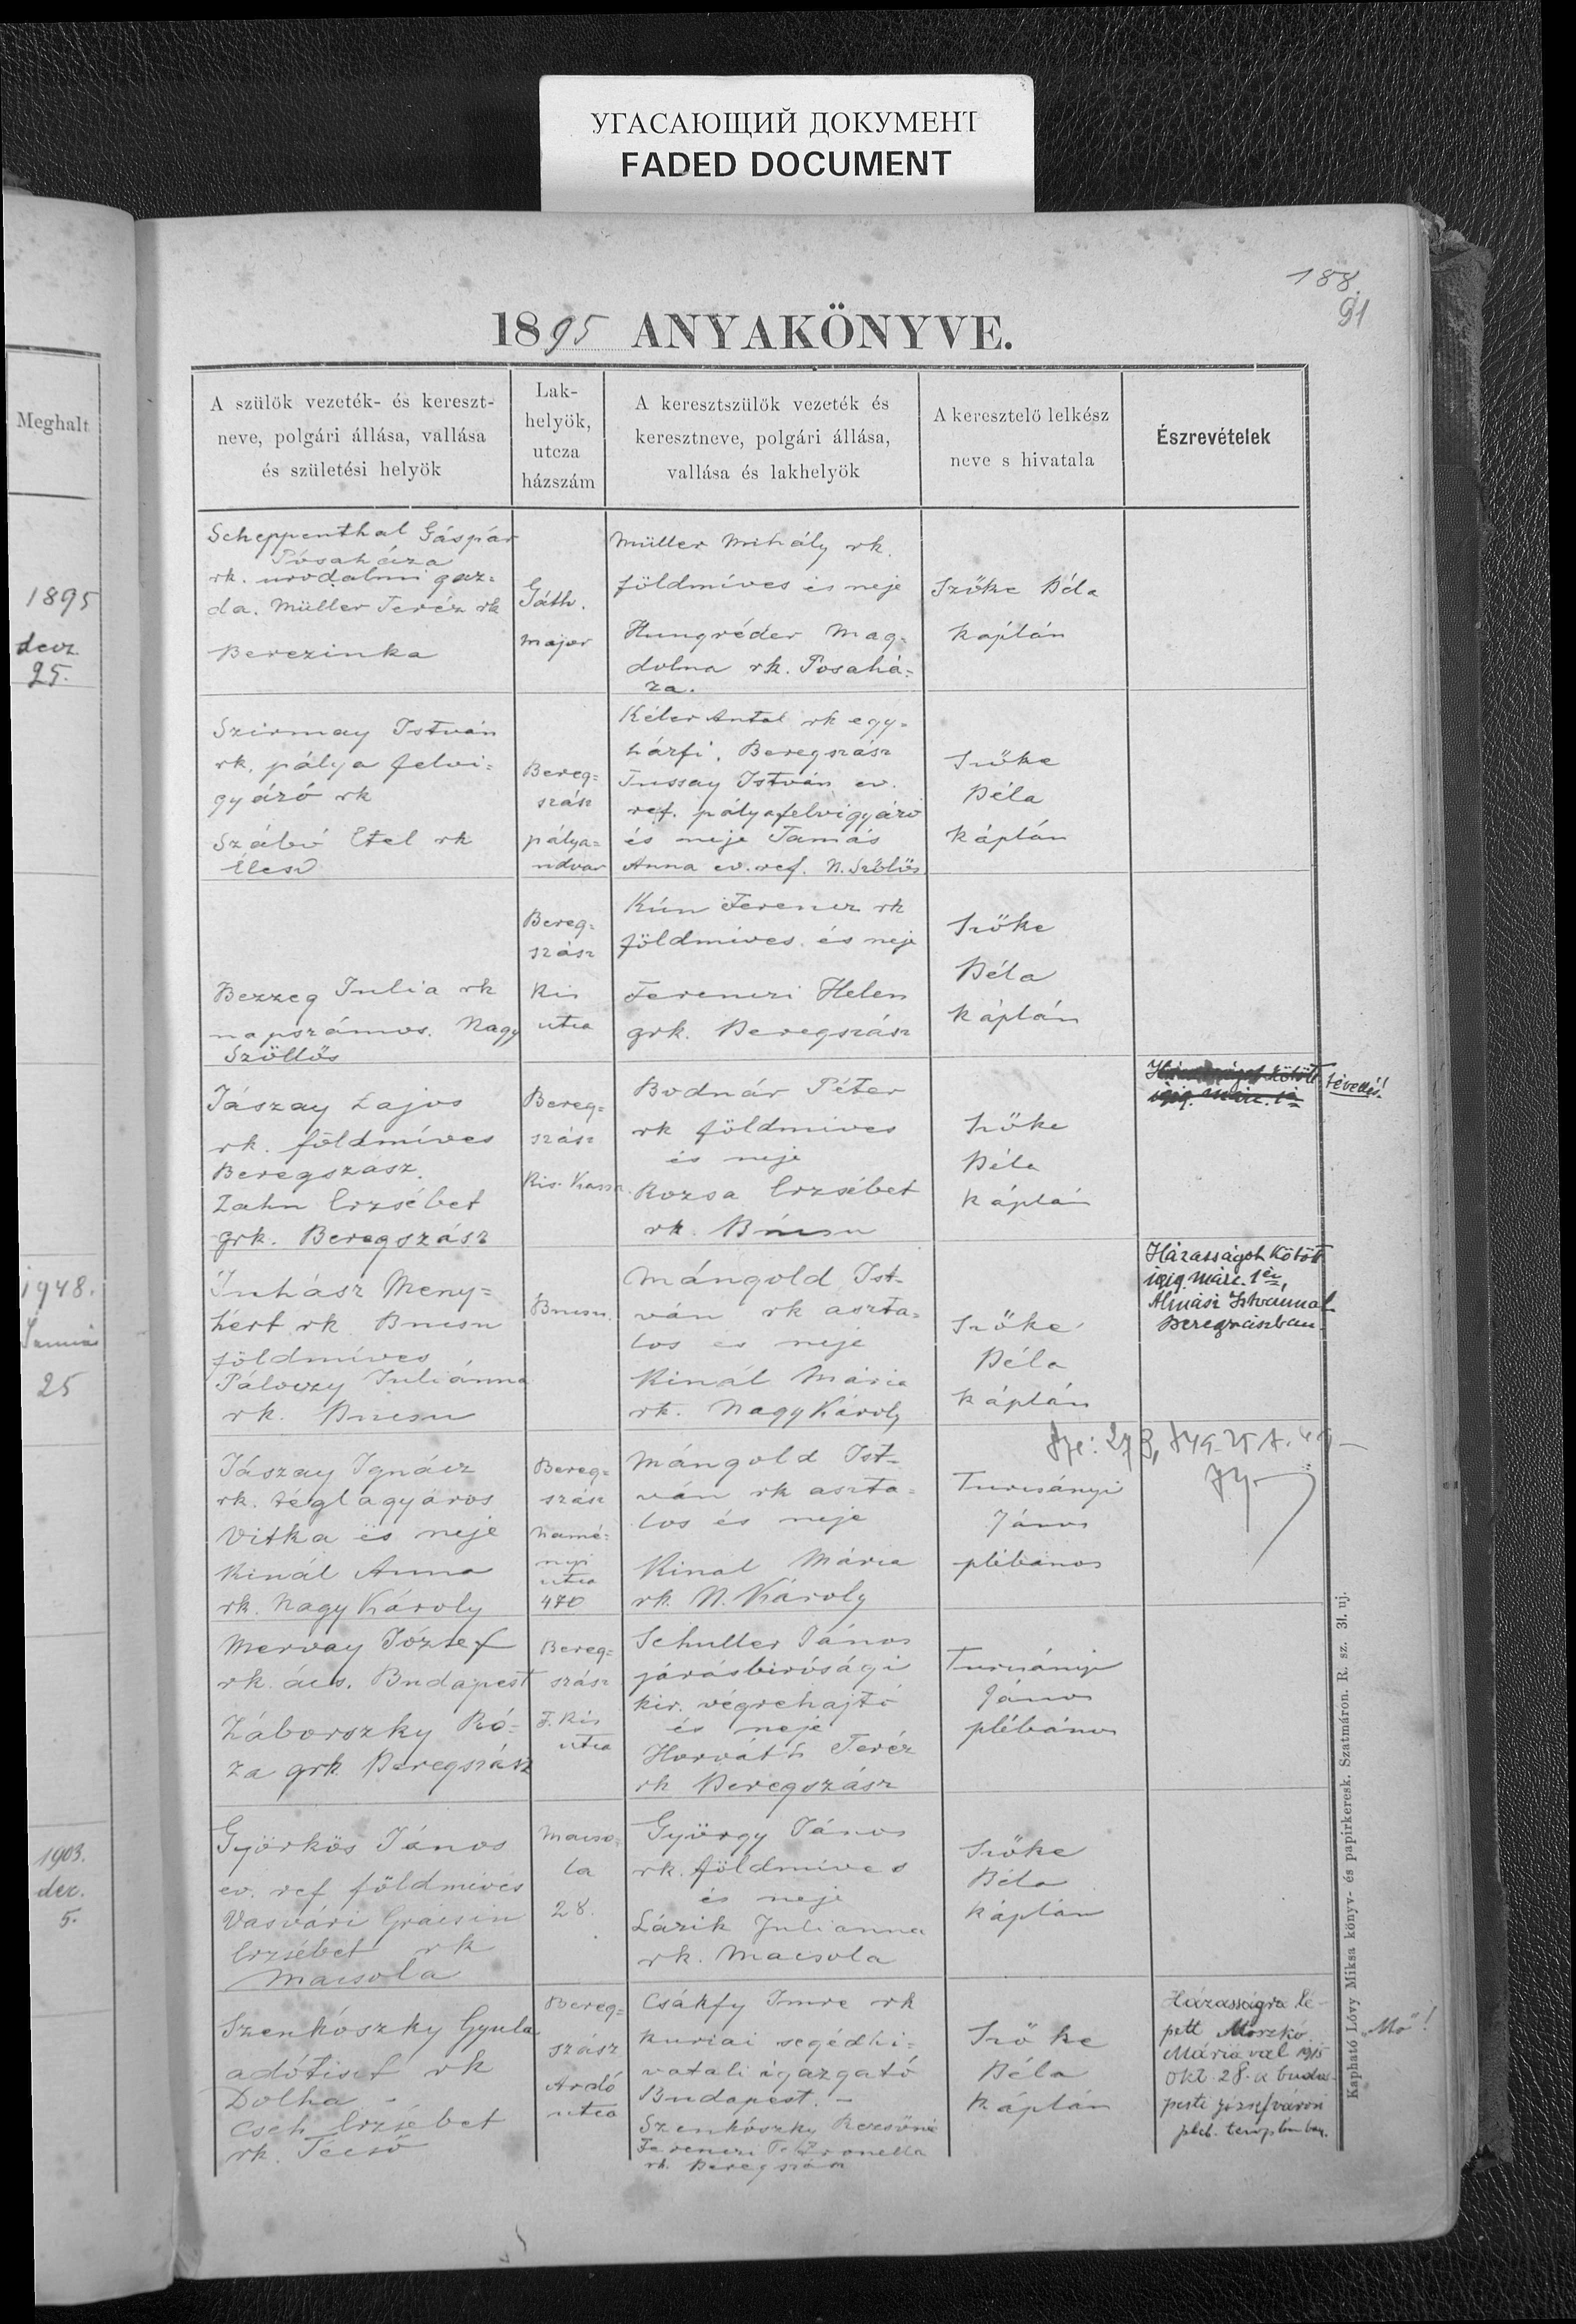 УГАСАЮЩИЙ ДОКУМЕНТ
FADED DOCUMENT
188.
91
1895 ANYAKÖNYVE.
Meghalt
1895
decz.
25.
1948.
25
1903.
dec.
5.
A szülök vezeték- és kereszt-
neve, polgári állása, vallása
és születési helyök
Lak-
helyök,
utcza
házszám
A keresztszülök vezeték és
keresztneve, polgári állása,
vallása és lakhelyök
A keresztelö lelkész
neve s hivatala
Észrevételek
Scheppenthal Gáspár
Pósaháza
rk. urodalmi gaz-
da. Müller Teréz rk
Berezinka
Gáth.
major
Müller Mihály rk.
földmíves és neje
Hungréder Mag-
dolna rk. Posahá-
za.
Szőke Béla
káplán
Szirmay István
rk. pálya felvi-
gyázó rk
Szabó Etel rk
Bereg-
szász
pálya-
udvar
Kéler Antal rk egy-
házfi. Beregszász
Tussay István ev.
ref. pályafelvigyázó
és neje Tamás
Anna ev. ref. N. Szőlős
Szőke
Béla
káplán
Bezzeg Julia rk
napszámos. Nagy
Szöllős
Bereg-
szász
Kis
utca
Kún Ferencz rk
földmíves és neje
Ferenczi Helen
grk. Beregszász
Szőke
Béla
káplán
Jászay Lajos
rk. földmíves
Beregszász.
Zahn Erzsébet
grk. Beregszász
Bereg-
szász
Kis-Kassa
Bodnár Péter
rk földmives
és neje
Rozsa Erzsébet
rk. Bucsu
Szőke
Béla
káplán
Házasságot kötött
1919. márc. 1én
tévedés!
Juhász Meny-
hért rk Bucsu
földmíves
Pálóczy Juliánna
rk. Bucsu
Bucsu.
Mángold Ist-
ván rk aszta-
los és neje
Kinál Mária
rk. Nagy Károly
Szőke
Béla
káplán
Házasságot kötött
1919. márc. 1én,
Almási Istvánnal
Beregszászban.
Jászay Ignácz
rk. téglagyáros
Vitka és neje
Kinál Anna
rk. Nagy Károly
Bereg-
szász
Namé-
nyi
utca
470
Mángold Ist-
ván rk aszta-
los és neje
Kinal Mária
rk. N. Károly
Turcsányi
János
plébános
Mervay József
rk. ács. Budapest
Záborszky Ró-
za grk. Beregszász
Bereg-
szász
F. Kis
utca
Schuller János
járásbirósági
kir. végrehajtó
és neje
Horváth Teréz
rk Beregszász
Turcsányi
János
plébános
Györkös János
ev. ref földmives
Vasvári Gracsin
Erzsébet rk
Macsola
Macso-
la
28.
György János
rk. földmíves
és neje
Lázik Julianna
rk. Macsola
Szőke
Béla
káplán
Szenkószky Gyula
adótiszt rk
Dolha -
Cseh Erzsébet
rk. Técső
Bereg-
szász
Ardó
utca
Csákfy Imre rk
kuriai segédhi-
vatali igazgató
Budapest. -
Szenkószky Rezsőné
Ferenczi Petronella
rk. Beregszász
Szőke
Béla
káplán
Házasságra lé-
pett Moszkó
Máriával 1915
okt. 28-a buda-
pesti józsefvárosi
pleb. templomban.
"Mo"!
Kapható Lóvy Miksa könyv- és papirkeresk. Szatmáron. R. sz. 31. uj.